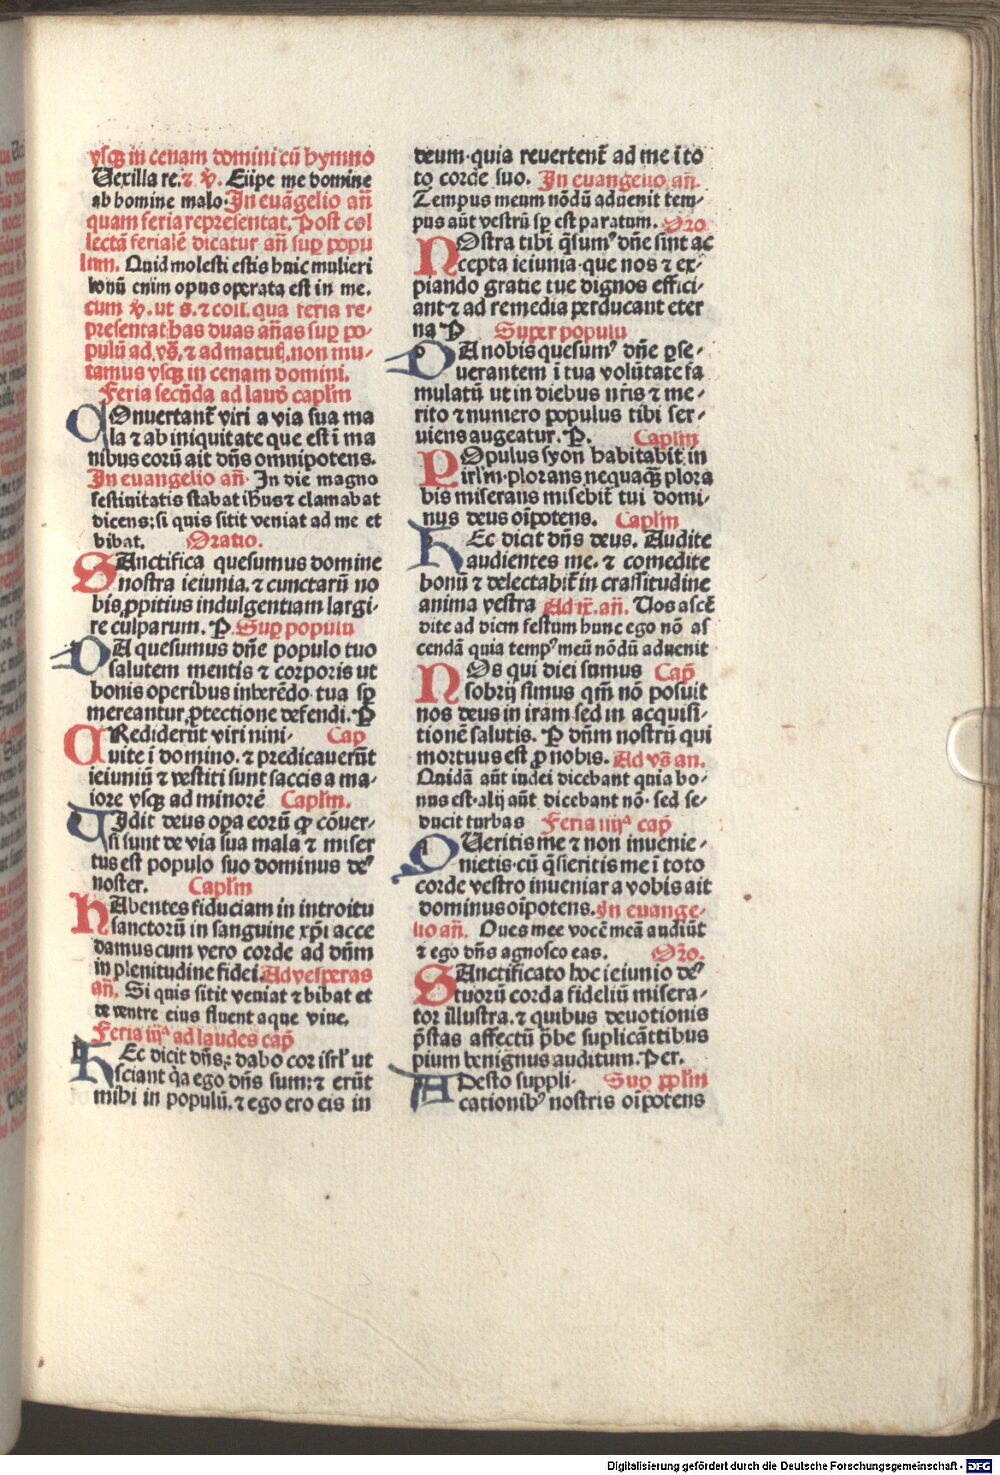 vsq̃ in cenam domini cũ hymno
Vexilla re. ⁊ v̾. Eripe me domine
ab homine malo. In euãgelio añ
quam feria representat. Post col
lectã ferialẽ dicatur añ sup̱ popu
lum. Quid molesti estis huic mulieri
bonũ enim opus operata est in me.
cum v̾. ut s. ⁊ coll. qua feria re⸗
presentat has duas añas sup̱ po⸗
pulũ ad vs̃. ⁊ ad matut̃. non mu⸗
tamus vsq̃ in cenam domini.
Feria secũda ad laud̾ capl̃m
COnuertant̃ viri a via sua ma
la ⁊ ab iniquitate que est ĩ ma
nibus eorũ ait dñs omnipotens.
In euangelio añ. In die magno
festiuitatis stabat ih̃us ⁊ clamabat
dicens: si quis sitit veniat ad me et
bibat. Oratio.
SAnctifica quesumus domine
nostra ieiunia. ⁊ cunctarũ no
bis ꝓpitius indulgentiam largi⸗
re culparum. P. Sup̱ populũ
DA quesumus dñe populo tuo
salutem mentis ⁊ corporis ut
bonis operibus inherẽdo tua sp̱
mereantur ꝓtectione defendi. P
CRediderũt viri nini⸗ Cap̃
uite ĩ domino. ⁊ predicauerũt
ieiuniũ ⁊ vestiti sunt saccis a ma⸗
iore vsq̃ ad minorẽ Capl̃m.
VIdit deus opa eorũ ꝙ cõuer⸗
si sunt de via sua mala ⁊ miser
tus est populo suo dominus de⁹
noster. Capl̃m
HAbentes fiduciam in introitu
sanctorũ in sanguine xp̃i acce
damus cum vero corde ad dñm
in plenitudine fidei. Ad vesperas
añ. Si quis sitit veniat ⁊ bibat et
de ventre eius fluent aque viue.
Feria iijª ad laudes cap̃
HEc dicit dñs: dabo cor isrl̃ ut
sciant q̃a ego dñs sum: ⁊ erũt
mihi in populũ. ⁊ ego ero eis in
deum. quia reuertent̃ ad me ĩ to
to corde suo. In euangelio añ.
Tempus meum nõdũ aduenit tem⸗
pus aũt vestrũ sp̱ est paratum. Oro
NOstra tibi q̃sum⁹ dñe sint ac
cepta ieiunia. que nos ⁊ ex⸗
piando gratie tue dignos effici⸗
ant ⁊ ad remedia perducant eter
na P Super populũ
DA nobis quesum⁹ dñe ꝑse⸗
uerantem ĩ tua volũtate fa
mulatũ ut in diebus nr̃is ⁊ me⸗
rito ⁊ numero populus tibi ser⸗
uiens augeatur. P. Capl̃m
POpulus syon habitabit in
irl̃m. plorans nequaq̃ plora
bis miserans misebit̃ tui domi⸗
nus deus oĩpotens. Capl̃m
HEc dicit dñs deus. Audite
audientes me. ⁊ comedite
bonũ ⁊ delectabit̃ in crassitudine
anima vestra Ad ij̃. añ. Vos ascẽ
dite ad diem festum hunc ego nõ as
cendã quia temp⁹ meũ nõdũ aduenit
NOs qui diei sumus Cap̃
sobrij simus qm̃ nõ posuit
nos deus in iram sed in acquisi⸗
tionẽ salutis. P dñm nostrũ qui
mortuus est ꝓ nobis. Ad vs̃ an.
Quidã aũt iudei dicebant quia bo⸗
nus est. alij aũt dicebant nõ. sed se⸗
ducit turbas Feria iiijª cap̃
QUeritis me ⁊ non inuenie⸗
nietis. cũ q̃sieritis me ĩ toto
corde vestro inueniar a vobis ait
dominus oĩpotens. In euange⸗
lio añ. Oues mee vocẽ meã audiũt
⁊ ego dñs agnosco eas. Oro.
SAnctificato hoc ieiunio de⁹
tuorũ corda fideliũ misera⸗
tor illustra. ⁊ quibus deuotionis
p̃stas affectũ p̃be suplicãtibus
pium benignus auditum. Per.
ADesto suppli⸗ Sup̱ ppl̃m
cationib⁹ nostris oĩpotens
Digitalisierung gefördert durch die Deutsche Forschungsgemeinschaft - DFG